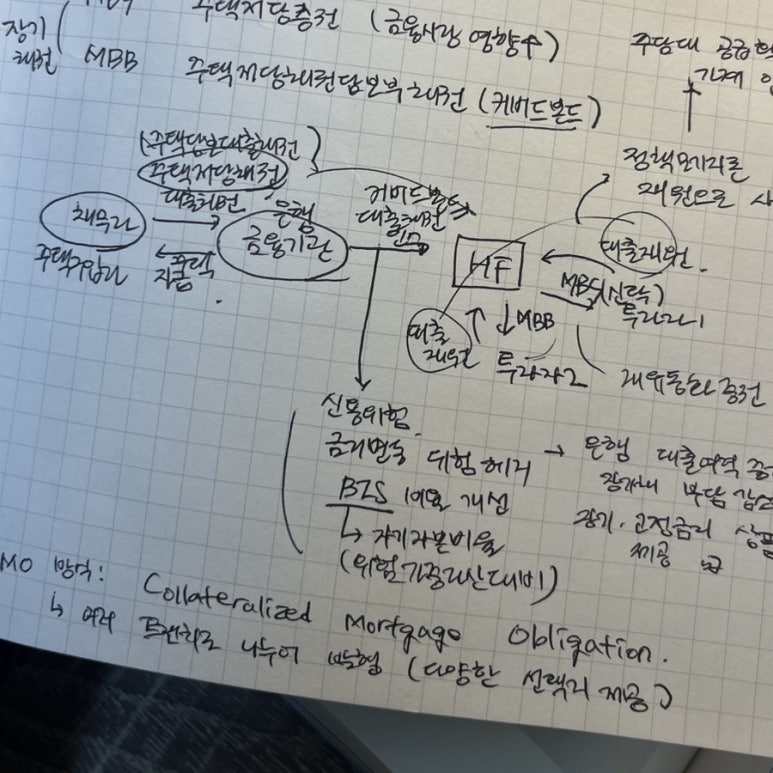 주택저당증권 (금융시장 영향↑)
장기
채권
MBB 주택저당채권담보부채권 (커버드본드)
주담대 공급
가계
(주택담보대출채권)
주택저당채권
대출채권
채무자
주택구입자
주택
지금
은행
금융기관
커버드본드
대출채권
HF
정책모기지론
재원으로
대출재원.
MBS(신탁)
투자자1
대출
재원
↓MBB
투자자2
재유동화증권
신용위험.
금리변동 위험헤지
BIS 비율 개선
↳ 자기자본비율
(위험가중자산대비)
→ 은행 대출여력
부담
장기·고정금리
제공
MO 방식: Collateralized Mortgage Obligation.
↳ 여러 트랜치로 나누어 발행 (다양한 선택지 제공)